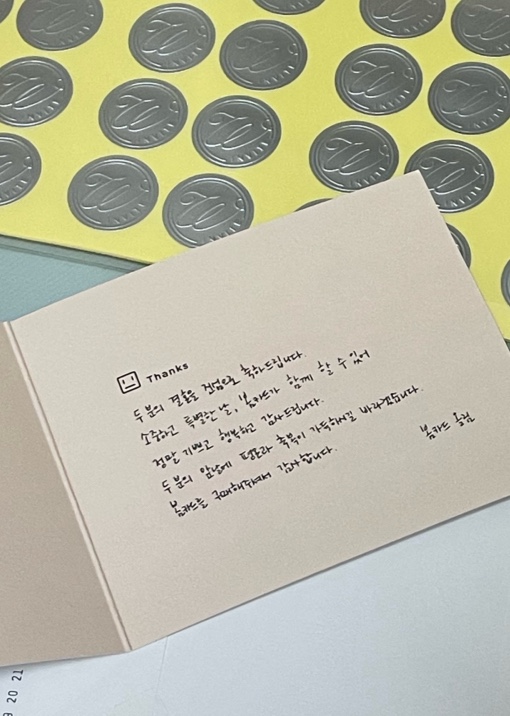 Thanks
두 분의 결혼을 진심으로 축하드립니다.
소중하고 특별한 날, 봄카드가 함께 할 수 있어
정말 기쁘고 행복하고 감사드립니다.
두 분의 앞날에 평안과 축복이 가득하시길 바라겠습니다.
봄카드를 구매해주셔서 감사합니다.
봄카드 드림
20 21